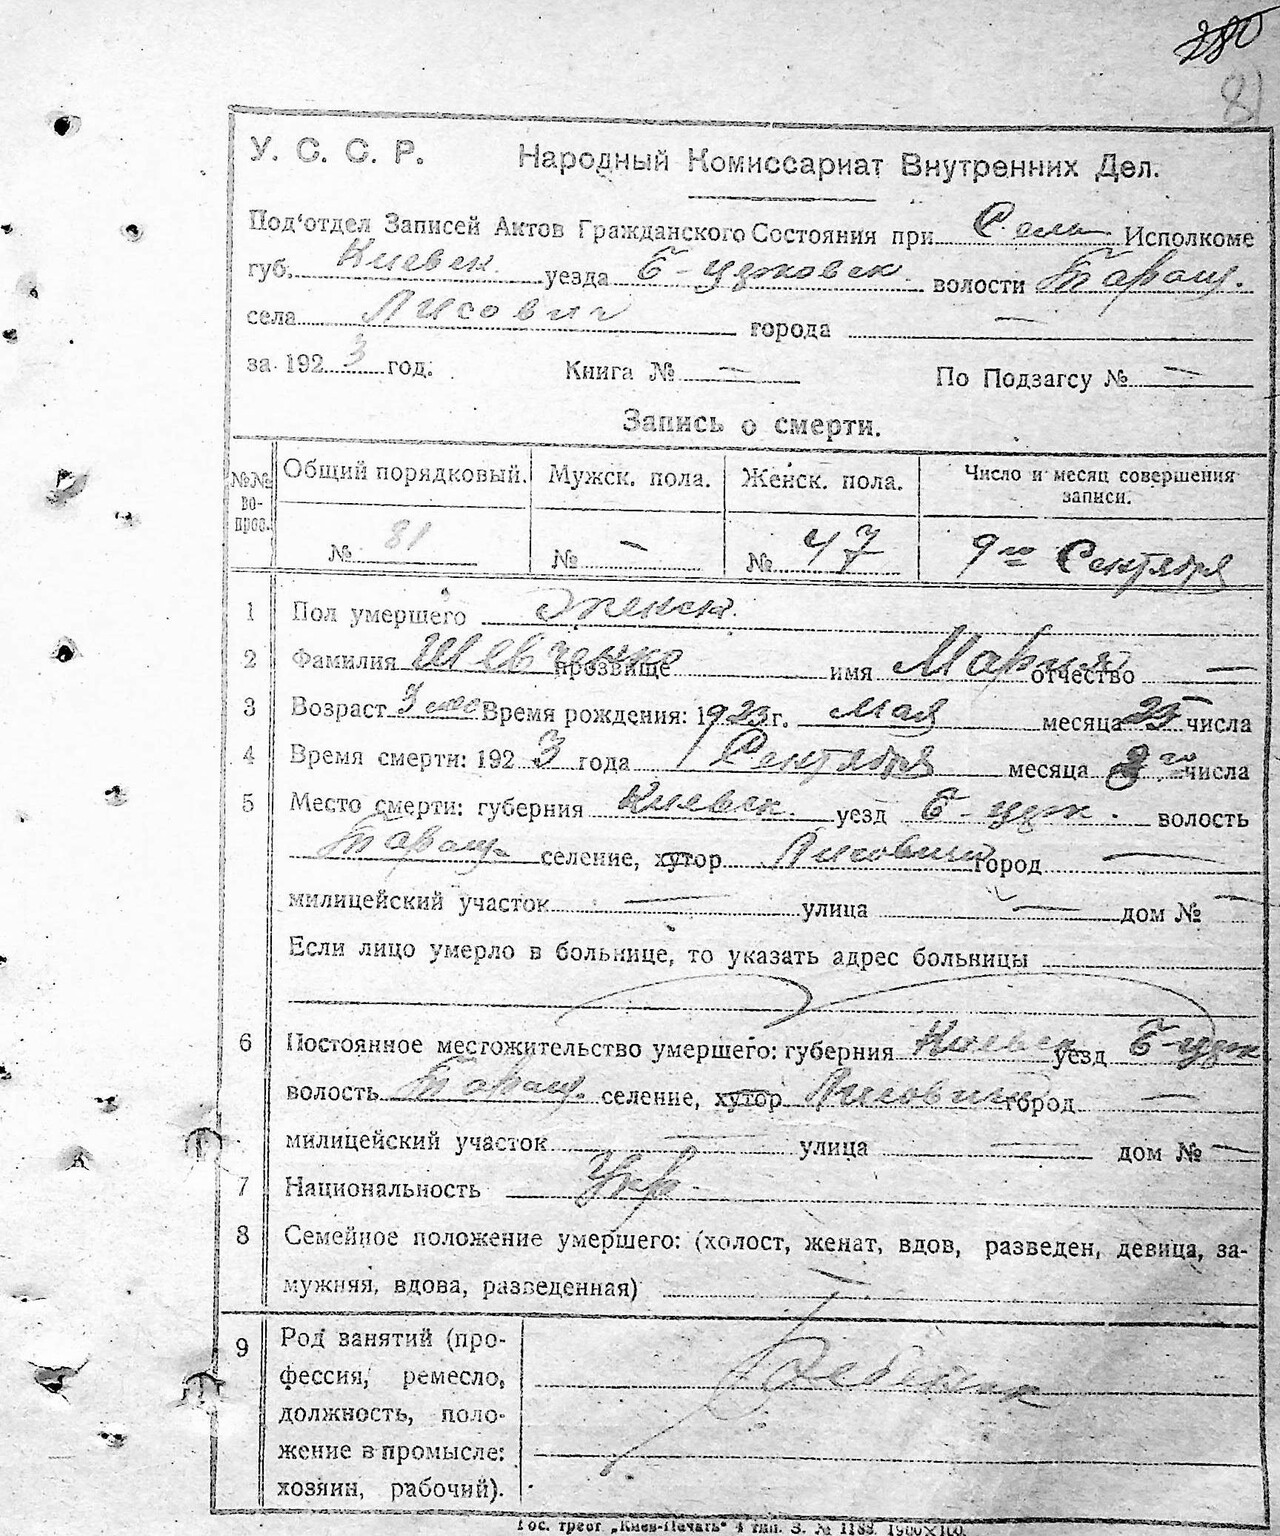 280
81
У. С. С. Р. Народный Комиссариат Внутренних Дел.
Под'отдел Записей Актов Гражданского Состояния при Сель Исполкоме
губ. Киевск. уезда Б-цжковск. волости Таращ.
села Лисович города —
за 1923 год. Книга № — По Подзагсу № —
Запись о смерти.
№№ во-прос. Общий порядковый. Мужск. пола. Женск. пола. Число и месяц совершения записи.
№ 81 № — № 47 9го Сентября
1 Пол умершего женск.
2 Фамилия Шевченко прозвище имя Мария отчество —
3 Возраст 3 мес Время рождения: 1923 г. Мая месяца 25 числа
4 Время смерти: 1923 года Сентября месяца 8го числа
5 Место смерти: губерния Киевск. уезд Б-цжк. волость
Таращ. селение, хутор Лисовичи город —
милицейский участок — улица — дом № —
Если лицо умерло в больнице, то указать адрес больницы
6 Постоянное местожительство умершего: губерния Киевск уезд Б-цжк
волость Таращ. селение, хутор Лисовичи город —
милицейский участок — улица — дом № —
7 Национальность Укр.
8 Семейное положение умершего: (холост, женат, вдов, разведен, девица, за-
мужняя, вдова, разведенная) —
9 Род занятий (про-
фессия, ремесло,
должность, поло-
жение в промысле:
хозяин, рабочий).
Ребенок
Гос. трест „Киев-Печать“ 4 тип. З. № 1183. 1900×100.